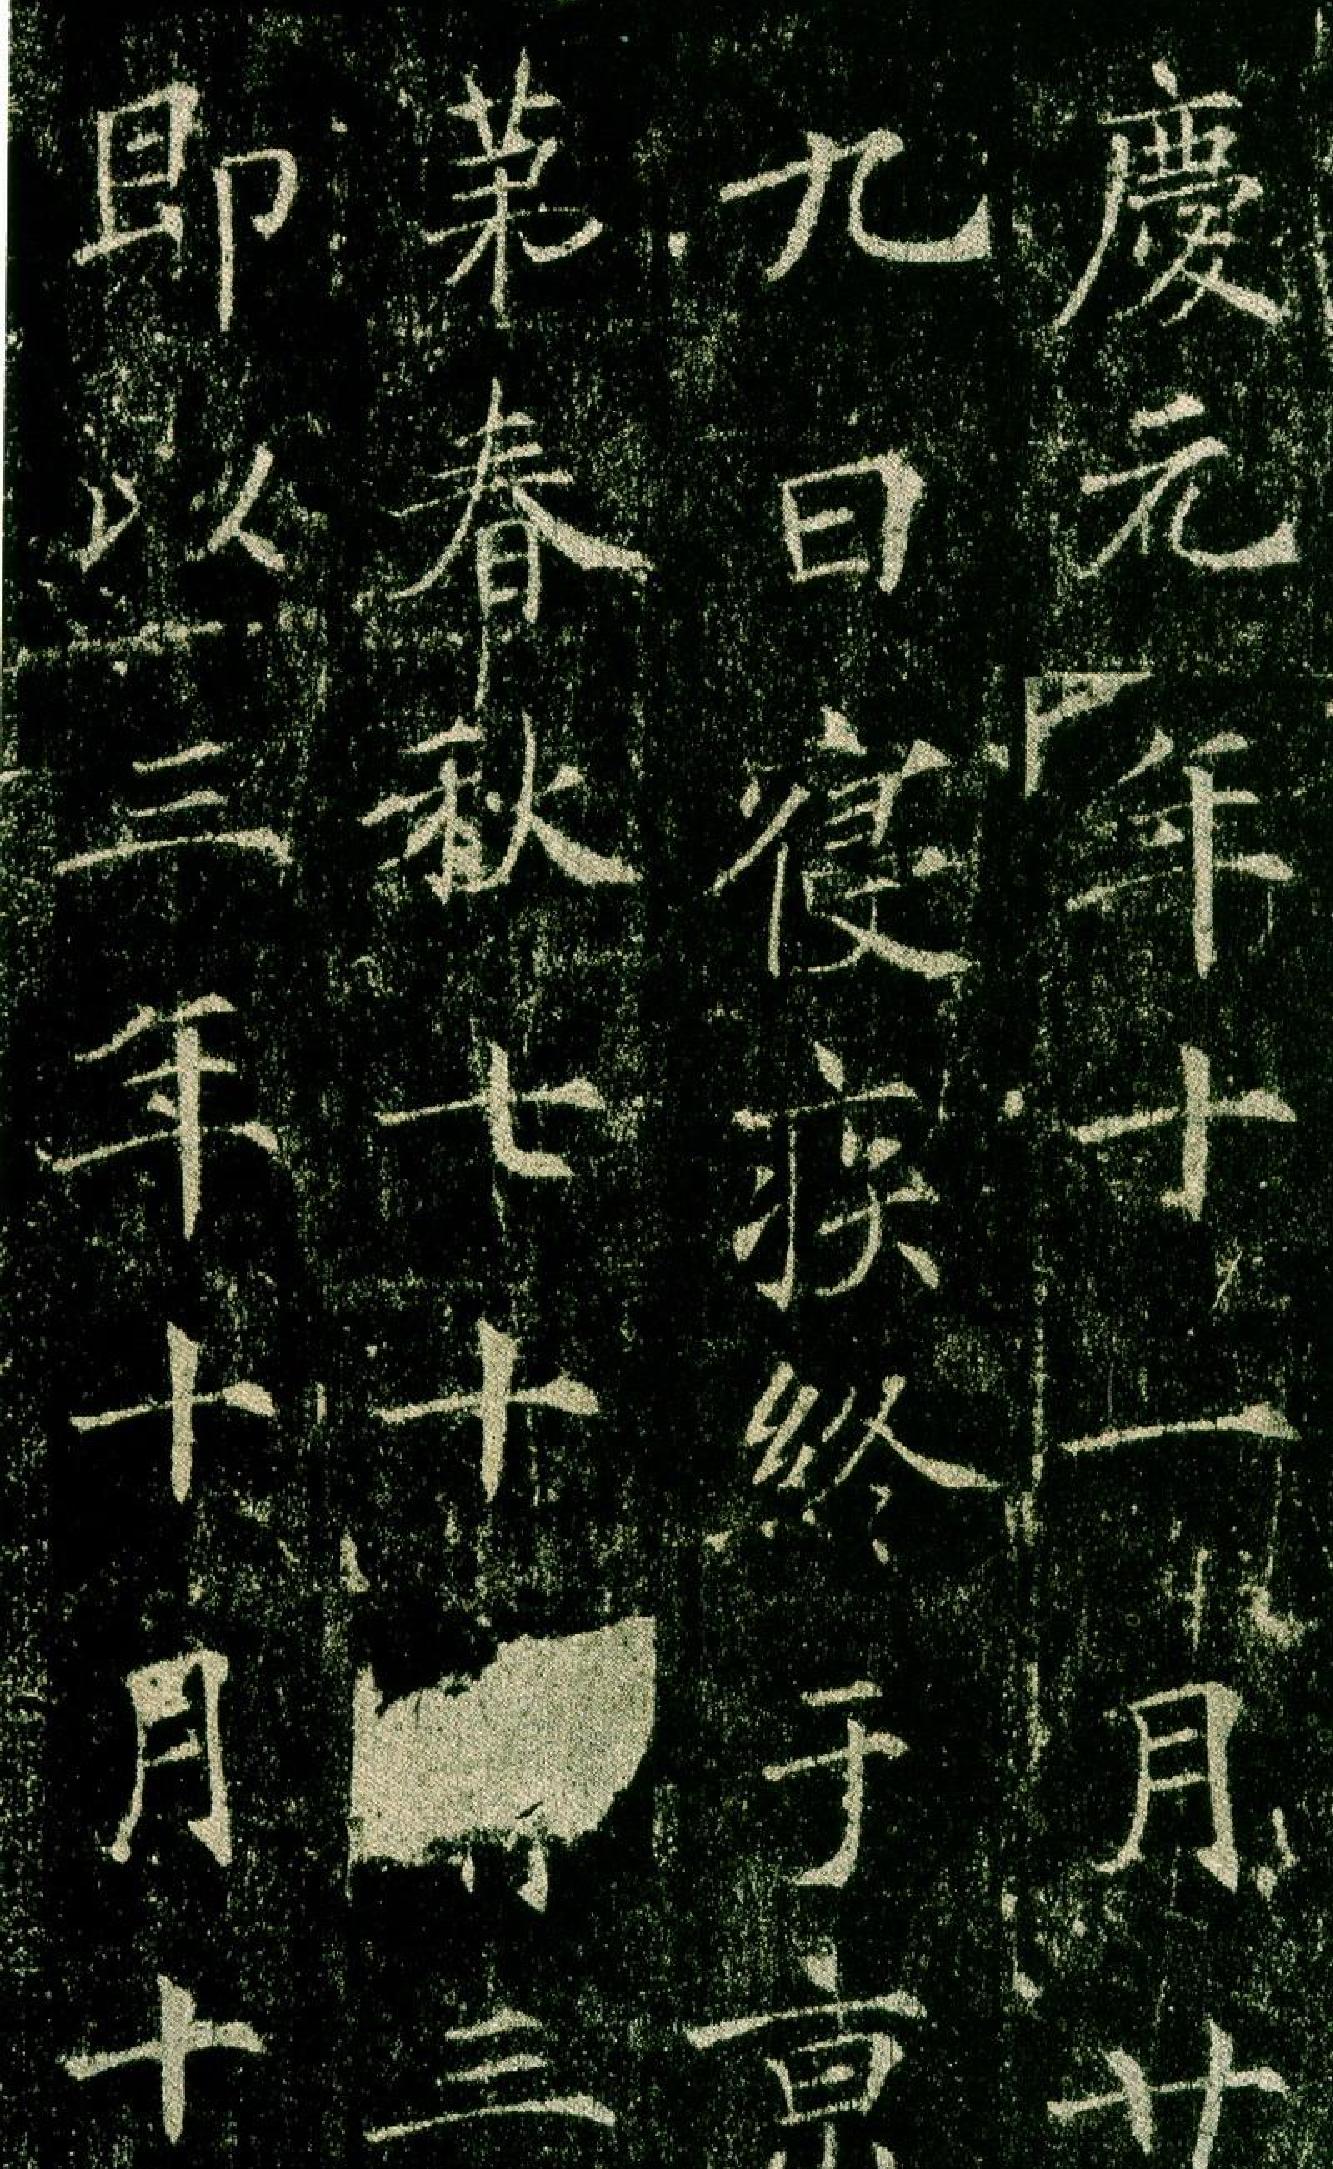 慶元年十一月廿
九日寢疾終于京
第春秋七十三
即以三年十月十